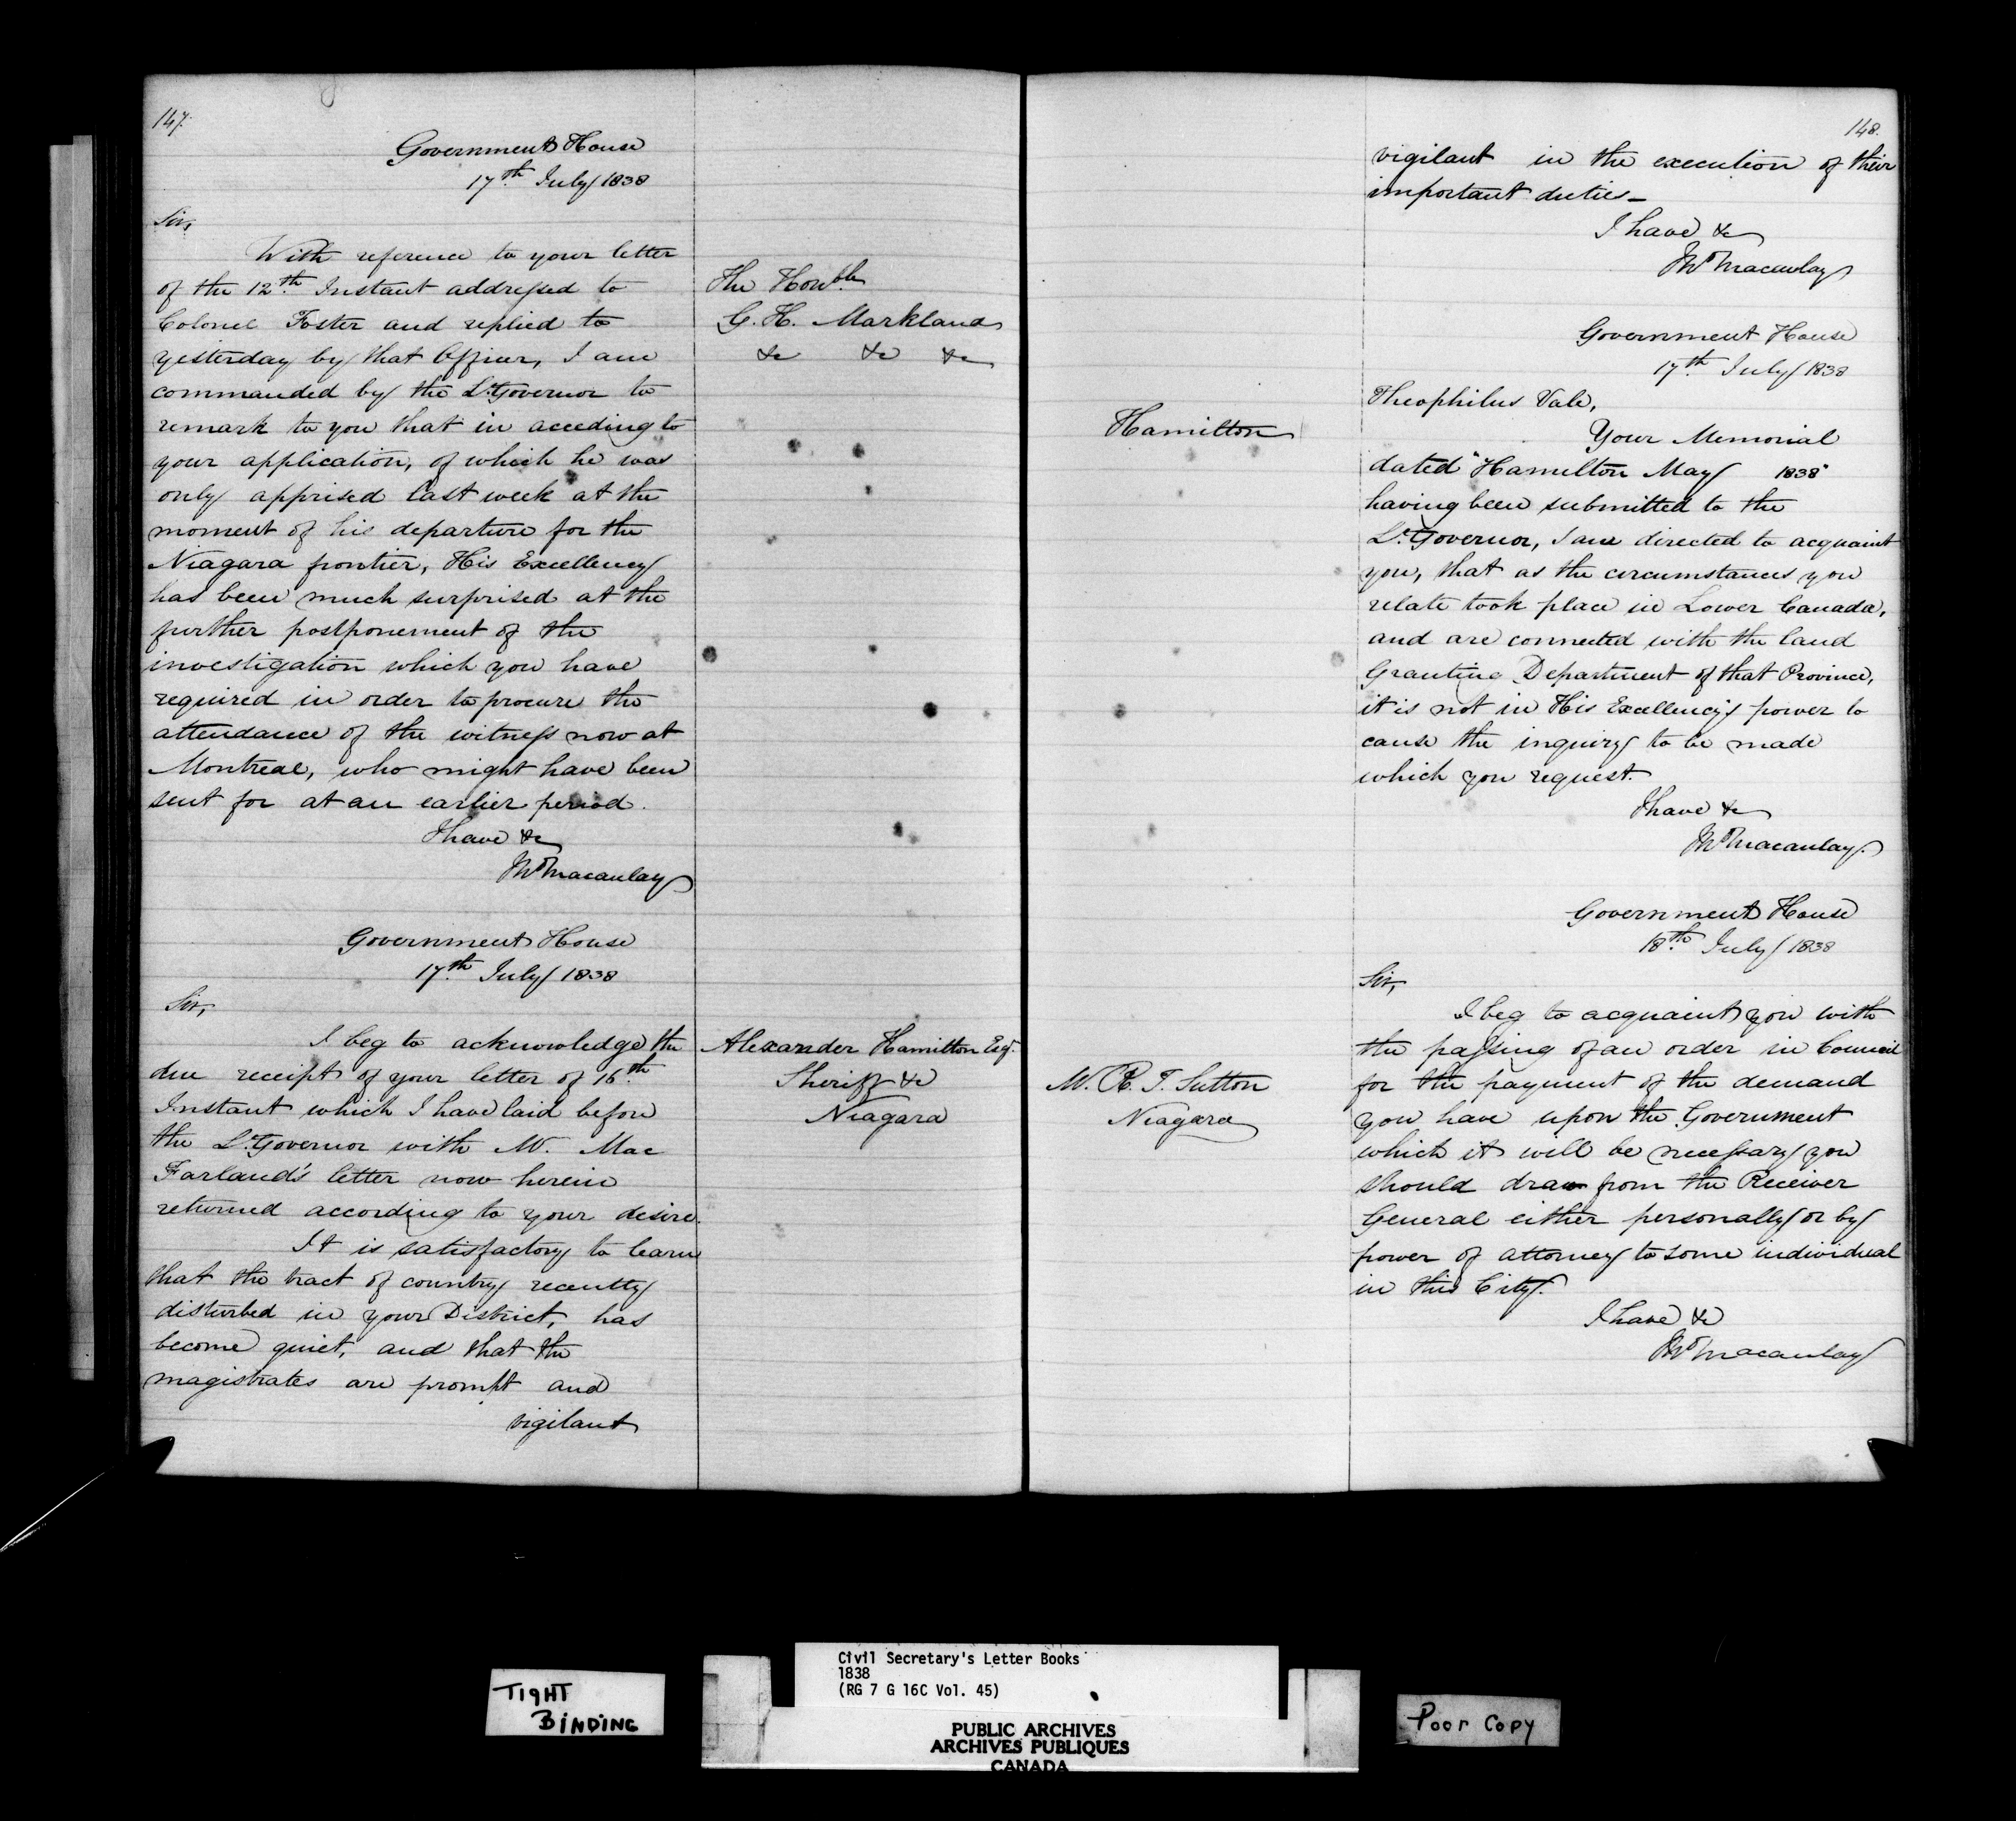 147.
Government House
17th July 1838
Sir,
With reference to your letter
of the 12th Instant addressed to
Colonel Foster and replied to
yesterday by that Officer, I am
commanded by the Lt Governor to
remark to you that in acceding to
your application, of which he was
only apprised last week at the
moment of his departure for the
Niagara frontier, His Excellency
has been much surprised at the
further postponement of the
investigation which you have
required in order to procure the
attendance of the witness now at
Montreal, who might have been
sent for at an earlier period.
I have &c
Jno Macaulay
The Honble
G. H. Markland
&c &c &c
Government House
17th July 1838
Sir,
I beg to acknowledge the
due receipt of your letter of 16th
Instant which I have laid before
the Lt Governor with M. Mac
Farland's letter now herein
returned according to your desire.
It is satisfactory to learn
that the tract of country recently
disturbed in your District, has
become quiet, and that the
magistrates are prompt and
vigilant
Alexander Hamilton Esqr.
Sheriff &c
Niagara
148.
vigilant in the execution of their
important duties—
I have &c
Jno Macaulay
Government House
17th July 1838
Hamilton
Theophilus Vale,
Your Memorial
dated "Hamilton May 1838"
having been submitted to the
Lt Governor, I am directed to acquaint
you, that as the circumstances you
relate took place in Lower Canada,
and are connected with the land
Granting Department of that Province,
it is not in His Excellency's power to
cause the inquiry to be made
which you request.
I have &c
Jno Macaulay
Government House
18th July 1838
Sir,
I beg to acquaint you with
the passing of an order in Council
for the payment of the demand
you have upon the Government
which it will be necessary you
should draw from the Receiver
General either personally or by
power of attorney to some individual
in this City.
I have &c
Jno Macaulay
M. R. T. Sutton
Niagara
TIGHT
BINDING
Civil Secretary's Letter Books
1838
(RG 7 G 16C Vol. 45)
PUBLIC ARCHIVES
ARCHIVES PUBLIQUES
CANADA
Poor Copy